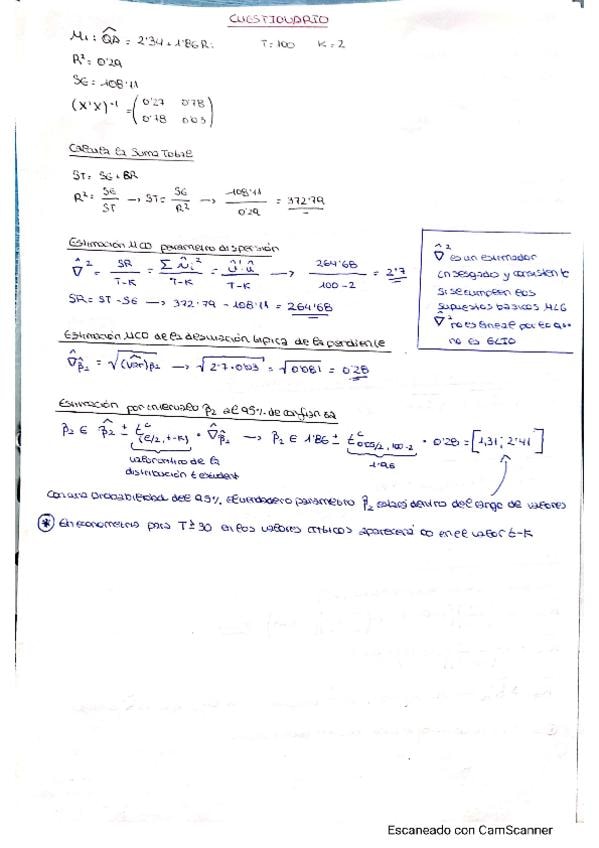 CUESTIONARIO
M1: Q̂A = 2'34 + 1'86Ri T=100 K=2
R² = 0'29
SE = 108'11
(X'X)⁻¹ = (0'27 0'78
0'78 0'03)
Calcula la Suma Total
ST = SE + BR
R² = SE/ST → ST = SE/R² → 108'11/0'29 = 372'79
Estimación MCO parametro dispersión
σ̂² = SR/T-K = Σûi²/T-K = û'û/T-K → 264'68/100-2 = 2'7
SR = ST - SE → 372'79 - 108'11 = 264'68
σ̂² es un estimador
insesgado y consistente
si se cumplen los
supuestos básicos MLG
σ̂² no es lineal por lo que
no es ELIO
Estimación MCO de la desviación típica de la pendiente
σ̂β̂2 = √(Var̂)β2 → √2'7·0'03 = √0'081 = 0'28
Estimación por intervalo β2 al 95% de confianza
β2 ∈ β̂2 ± t^c(ε/2, t-K) · σ̂β̂2 → β2 ∈ 1'86 ± t^c0'05/2, 100-2 · 0'28 = [1,31 ; 2'41]
valor crítico de la
distribución t student
1'96
Con una probabilidad del 95% el verdadero parametro β2 estará dentro del rango de valores
* En econometria para T ≥ 30 en los valores críticos aparecerá ∞ en el valor t-K
Escaneado con CamScanner